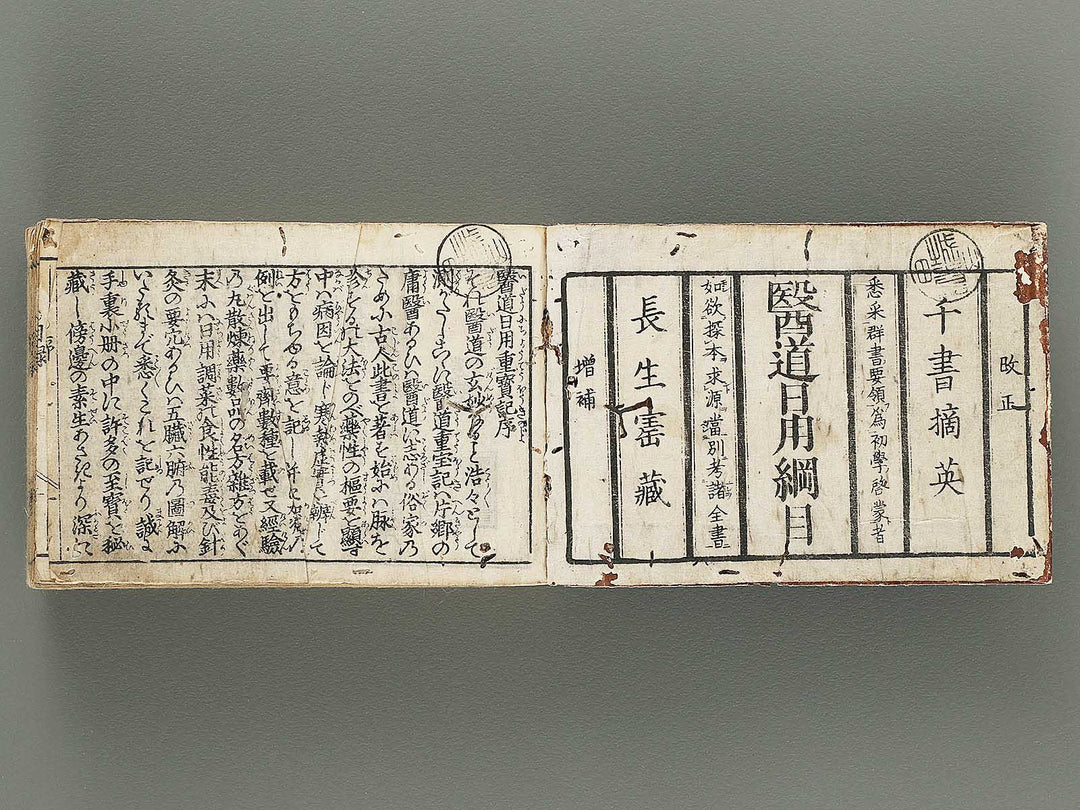 改正
千書摘英
悉采群書要領為初學啓蒙者
醫道日用綱目
如欲探本求源當別考諸全書
長生䆴藏
増補
醫道日用重寶記序
それ醫道の玄妙なると浩々として
測がたしこゝに醫道重宝記ハ片郷の
庸醫あるひハ醫道に志ある俗家乃
ために古人此書を著す始にハ脉を
診する乃大法をのべ藥性の樞要を顕す
中ハ病因を論じ寒熱虚實を辨して
方をもちゆる意を記し
例を出して要藥數種を載せ又經驗
乃丸散煉藥數品の名方雜方をあぐ
末にハ日用調菜乃食性能毒及び針
灸の要穴あるひハ五臓六腑乃圖解に
いたるまで悉くこれを記せり誠に
手裏小冊の中に許多の至寶を秘
藏し傍邊の素生あきなり深に